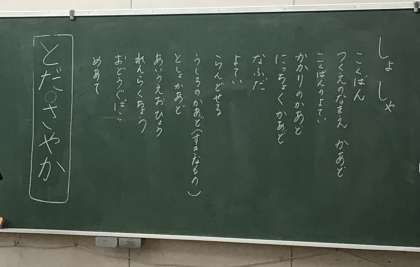 しょしゃ
こくばん
つくえのなまえ かあど
こくばんのよてい
かかりのかあど
にっちょくかあど
なふだ
よてい
らんどせる
うしろのかあど(すきなもの)
としょかあど
あいうえおひょう
れんらくちょう
おどうぐばこ
めあて
とださやか